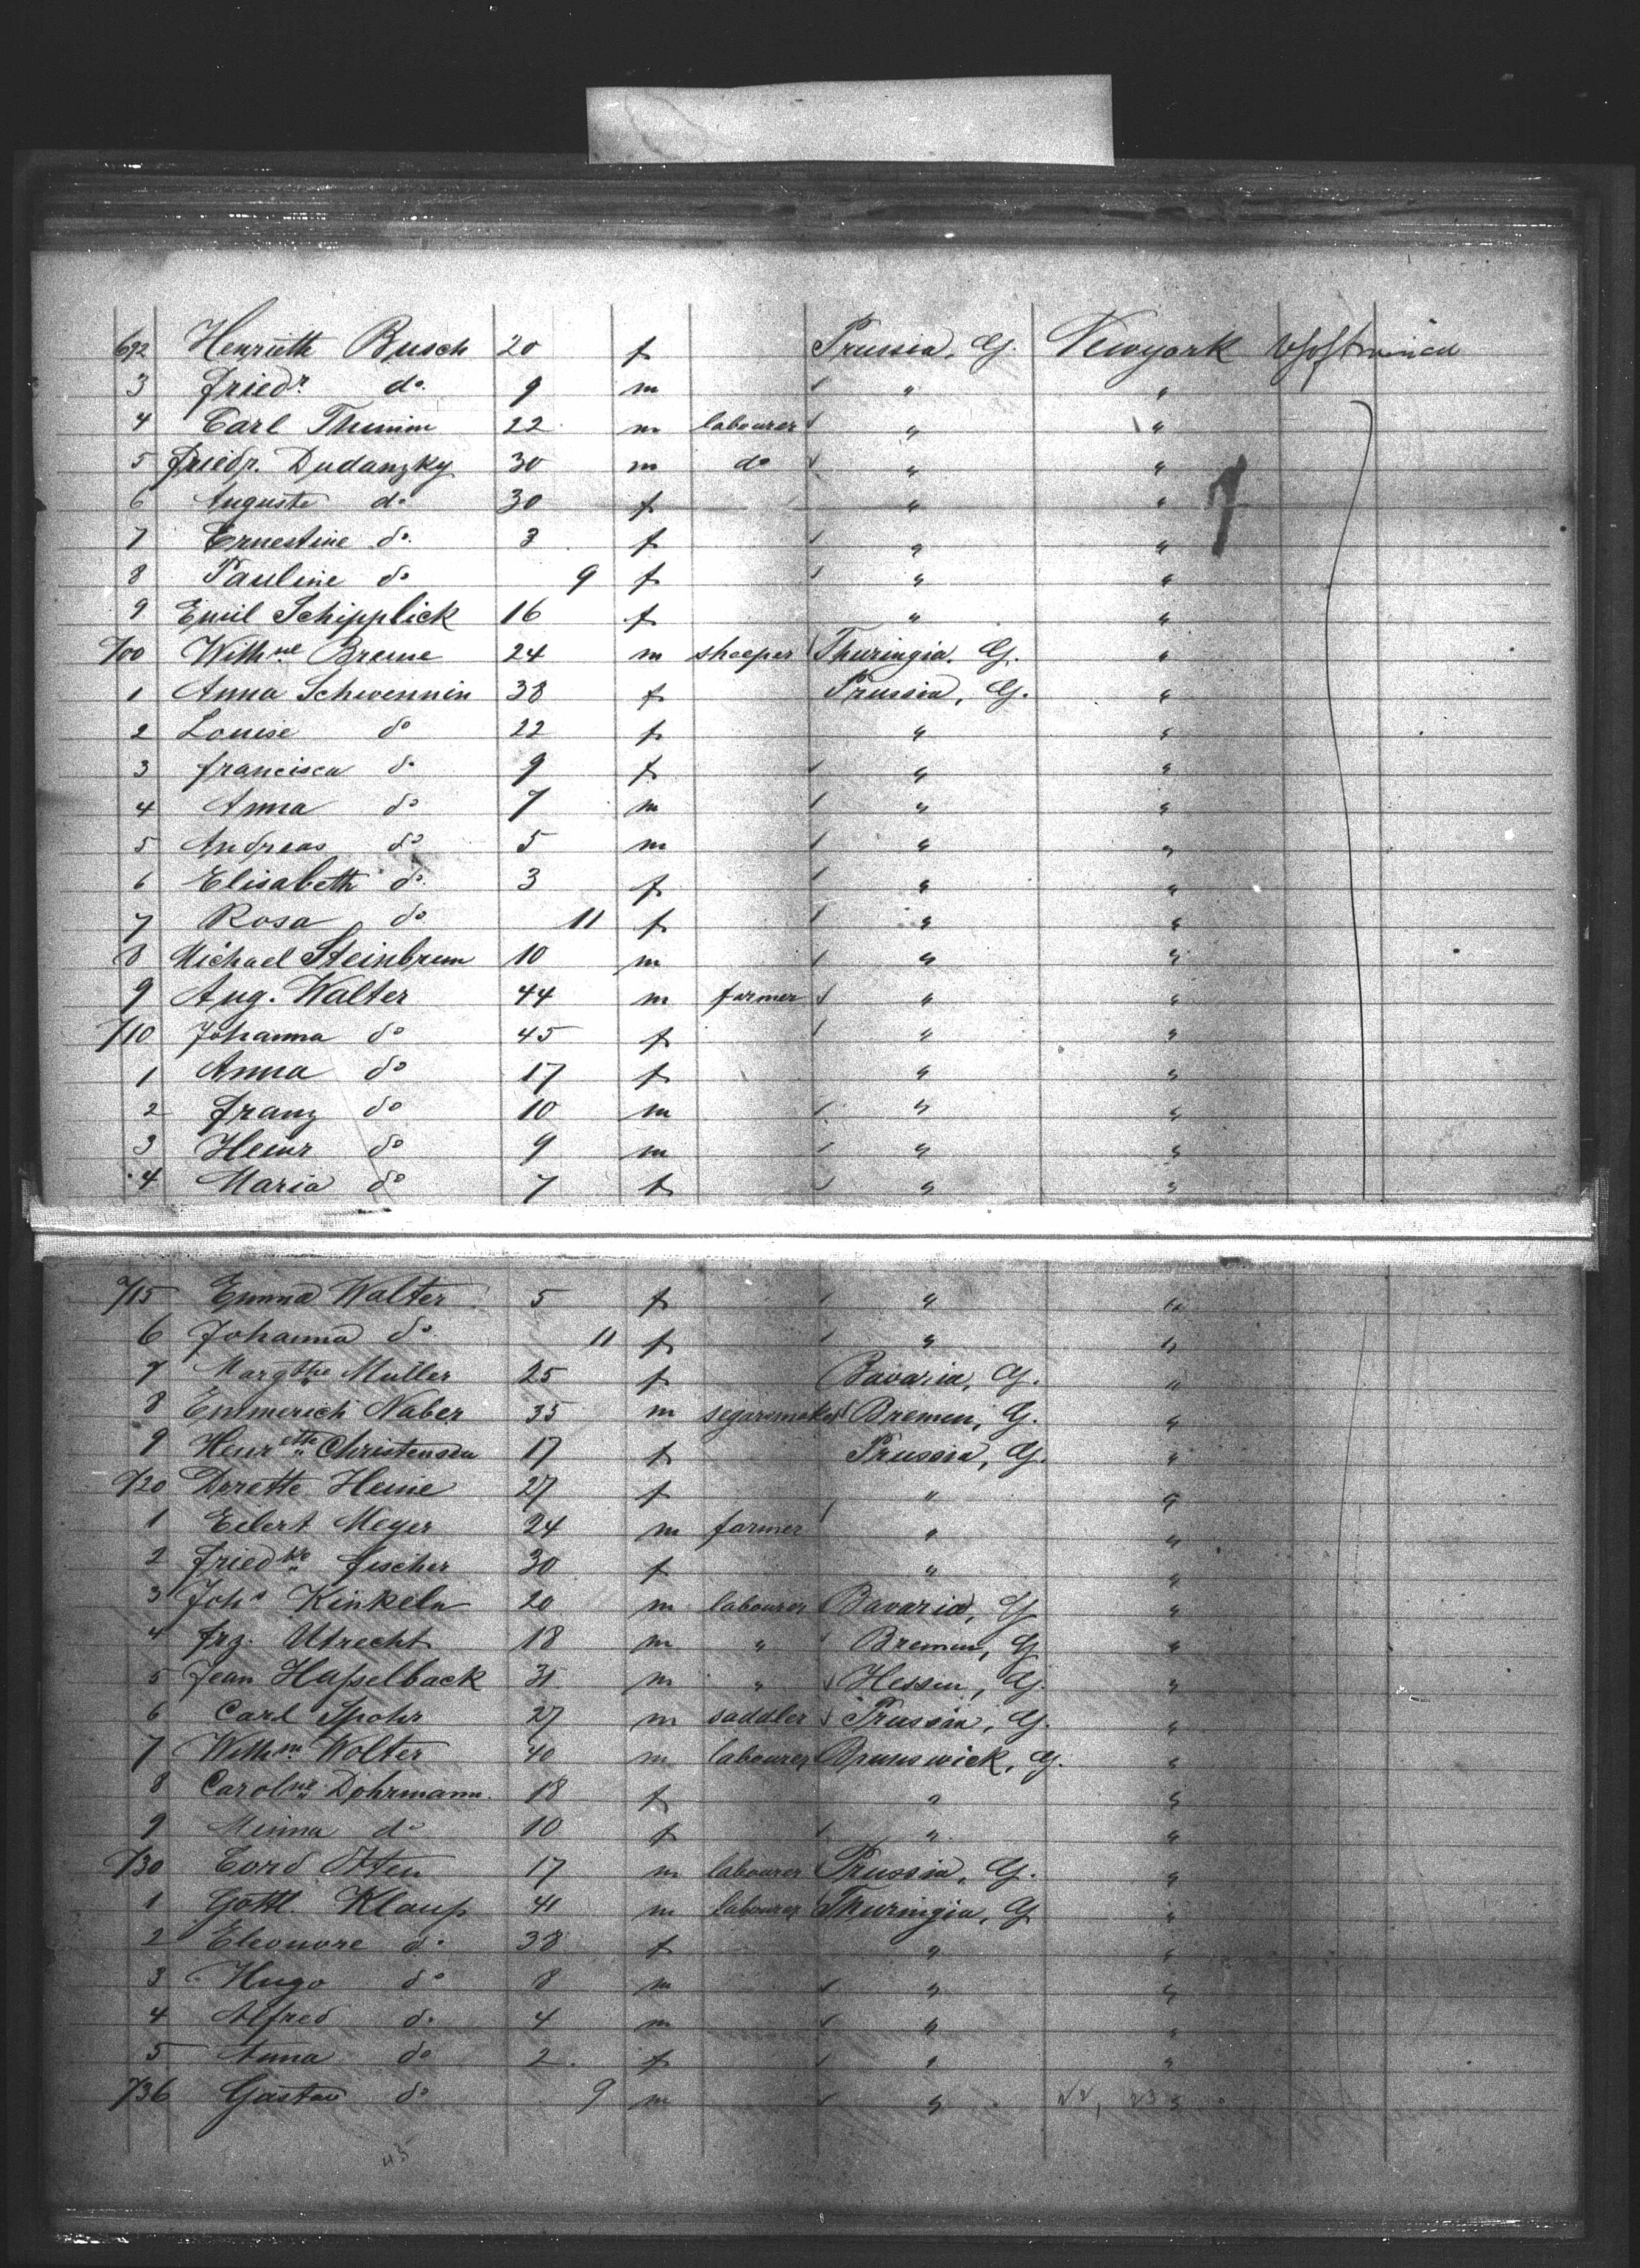 692 Henrieth Busch 20 f Prussia, G. Newyork
3 Friedr. do. 9 m " "
4 Carl Thimm 22 m labourer " "
5 Friedr. Dudanzky 30 m do " "
6 Auguste do 30 f " "
7 Ernestine do. 3 f " "
8 Pauline do 9 f " "
9 Emil Schipplick 16 f " "
700 Wilhne Breme 24 m Thuringia. G. "
1 Anna Schwennin 38 f Prussia, G. "
2 Louise do 22 f " "
3 Francisca do 9 f " "
4 Anna do 7 m " "
5 Andreas do 5 m " "
6 Elisabeth do. 3 f " "
7 Rosa do 11 f " "
8 Michael Steinbrun 10 m " "
9 Aug. Walter 44 m farmer " "
710 Johanna do 45 f " "
1 Anna do 17 f " "
2 Franz do 10 m " "
3 Heinr do 9 m " "
4 Maria do 7 f " "
715 Emma Walter 5 f " "
6 Johanna do 11 f " "
7 Margthe Muller 25 f Bavaria, G. "
8 Emmerich Naber 35 m segarsmaker Bremen, G. "
9 Henrette Christensen 17 f Prussia, G. "
720 Dorette Heine 27 f " "
1 Eilert Meyer 24 m farmer " "
2 Friedke Fischer 30 f " "
3 Johs Kinkeln 20 m labourer Bavaria, G "
4 Frz. Utrecht 18 m " Bremen, G "
5 Jean Haßelback 31 m " Hessen, G. "
6 Carl Spohr 27 m saddler Prussia, G. "
7 Wilhm Wolter 40 m labourer Brunswick, G. "
8 Carolne Dohrmann 18 f " "
9 Minna do 10 f " "
730 Cord Otten 17 m labourer Prussia, G. "
1 Gottl. Klauß 41 m labourer Thuringia, G "
2 Eleonore do 38 f " "
3 Hugo do 8 m " "
4 Alfred do. 4 m " "
5 Anna do 2 f " "
736 Gustav do 9 m " "